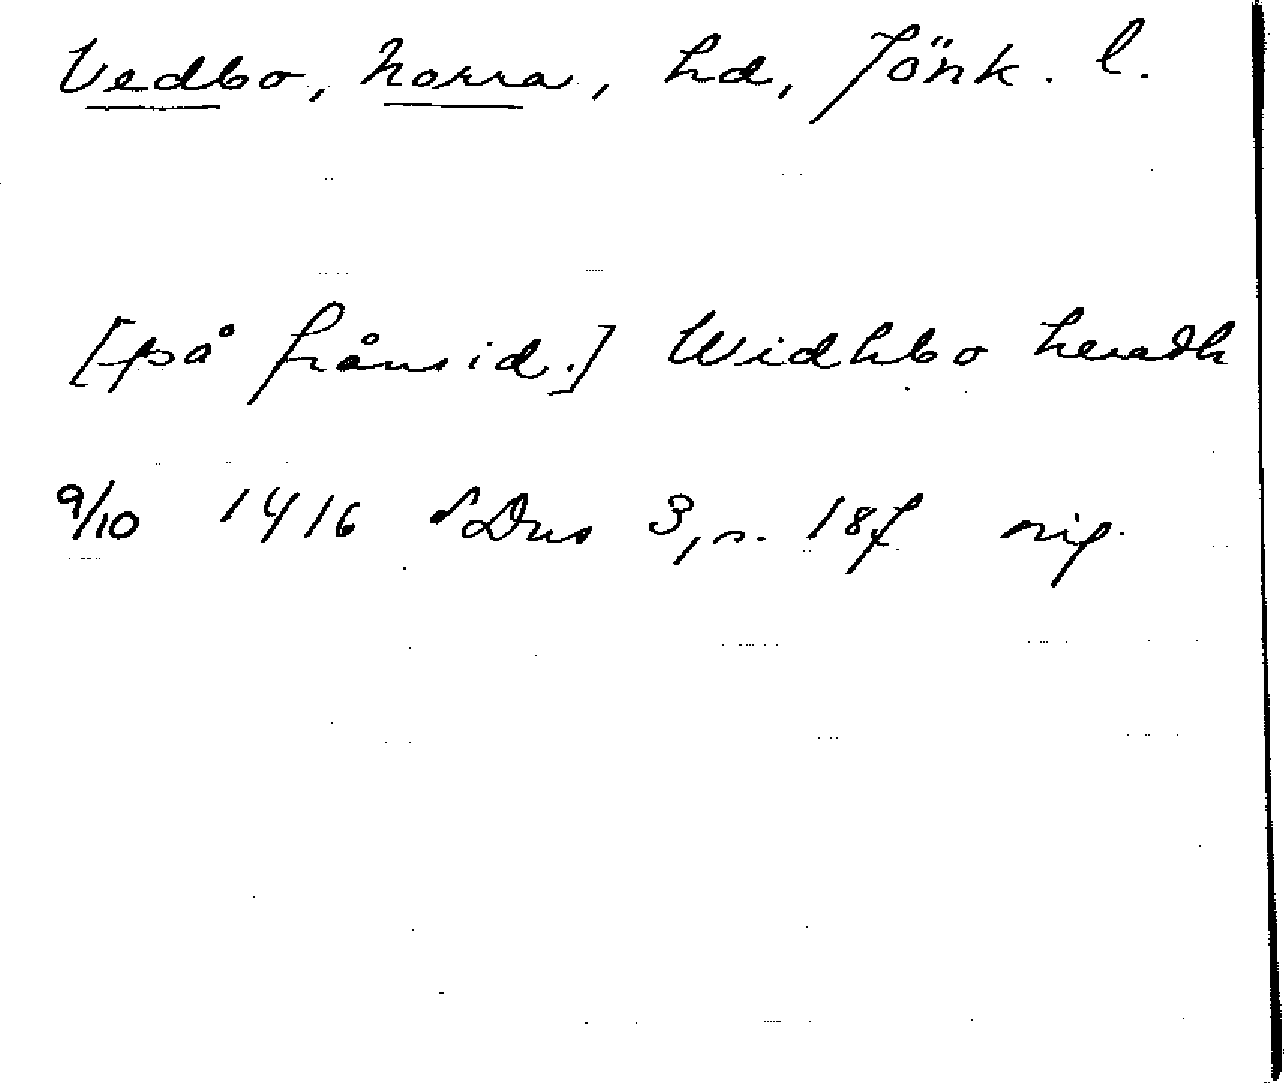 Vedbo, Norra, hd, Jönk. l.
[på frånsid.] Widhbo heradh
9/10 1416 SDns 3, s. 18f orig.